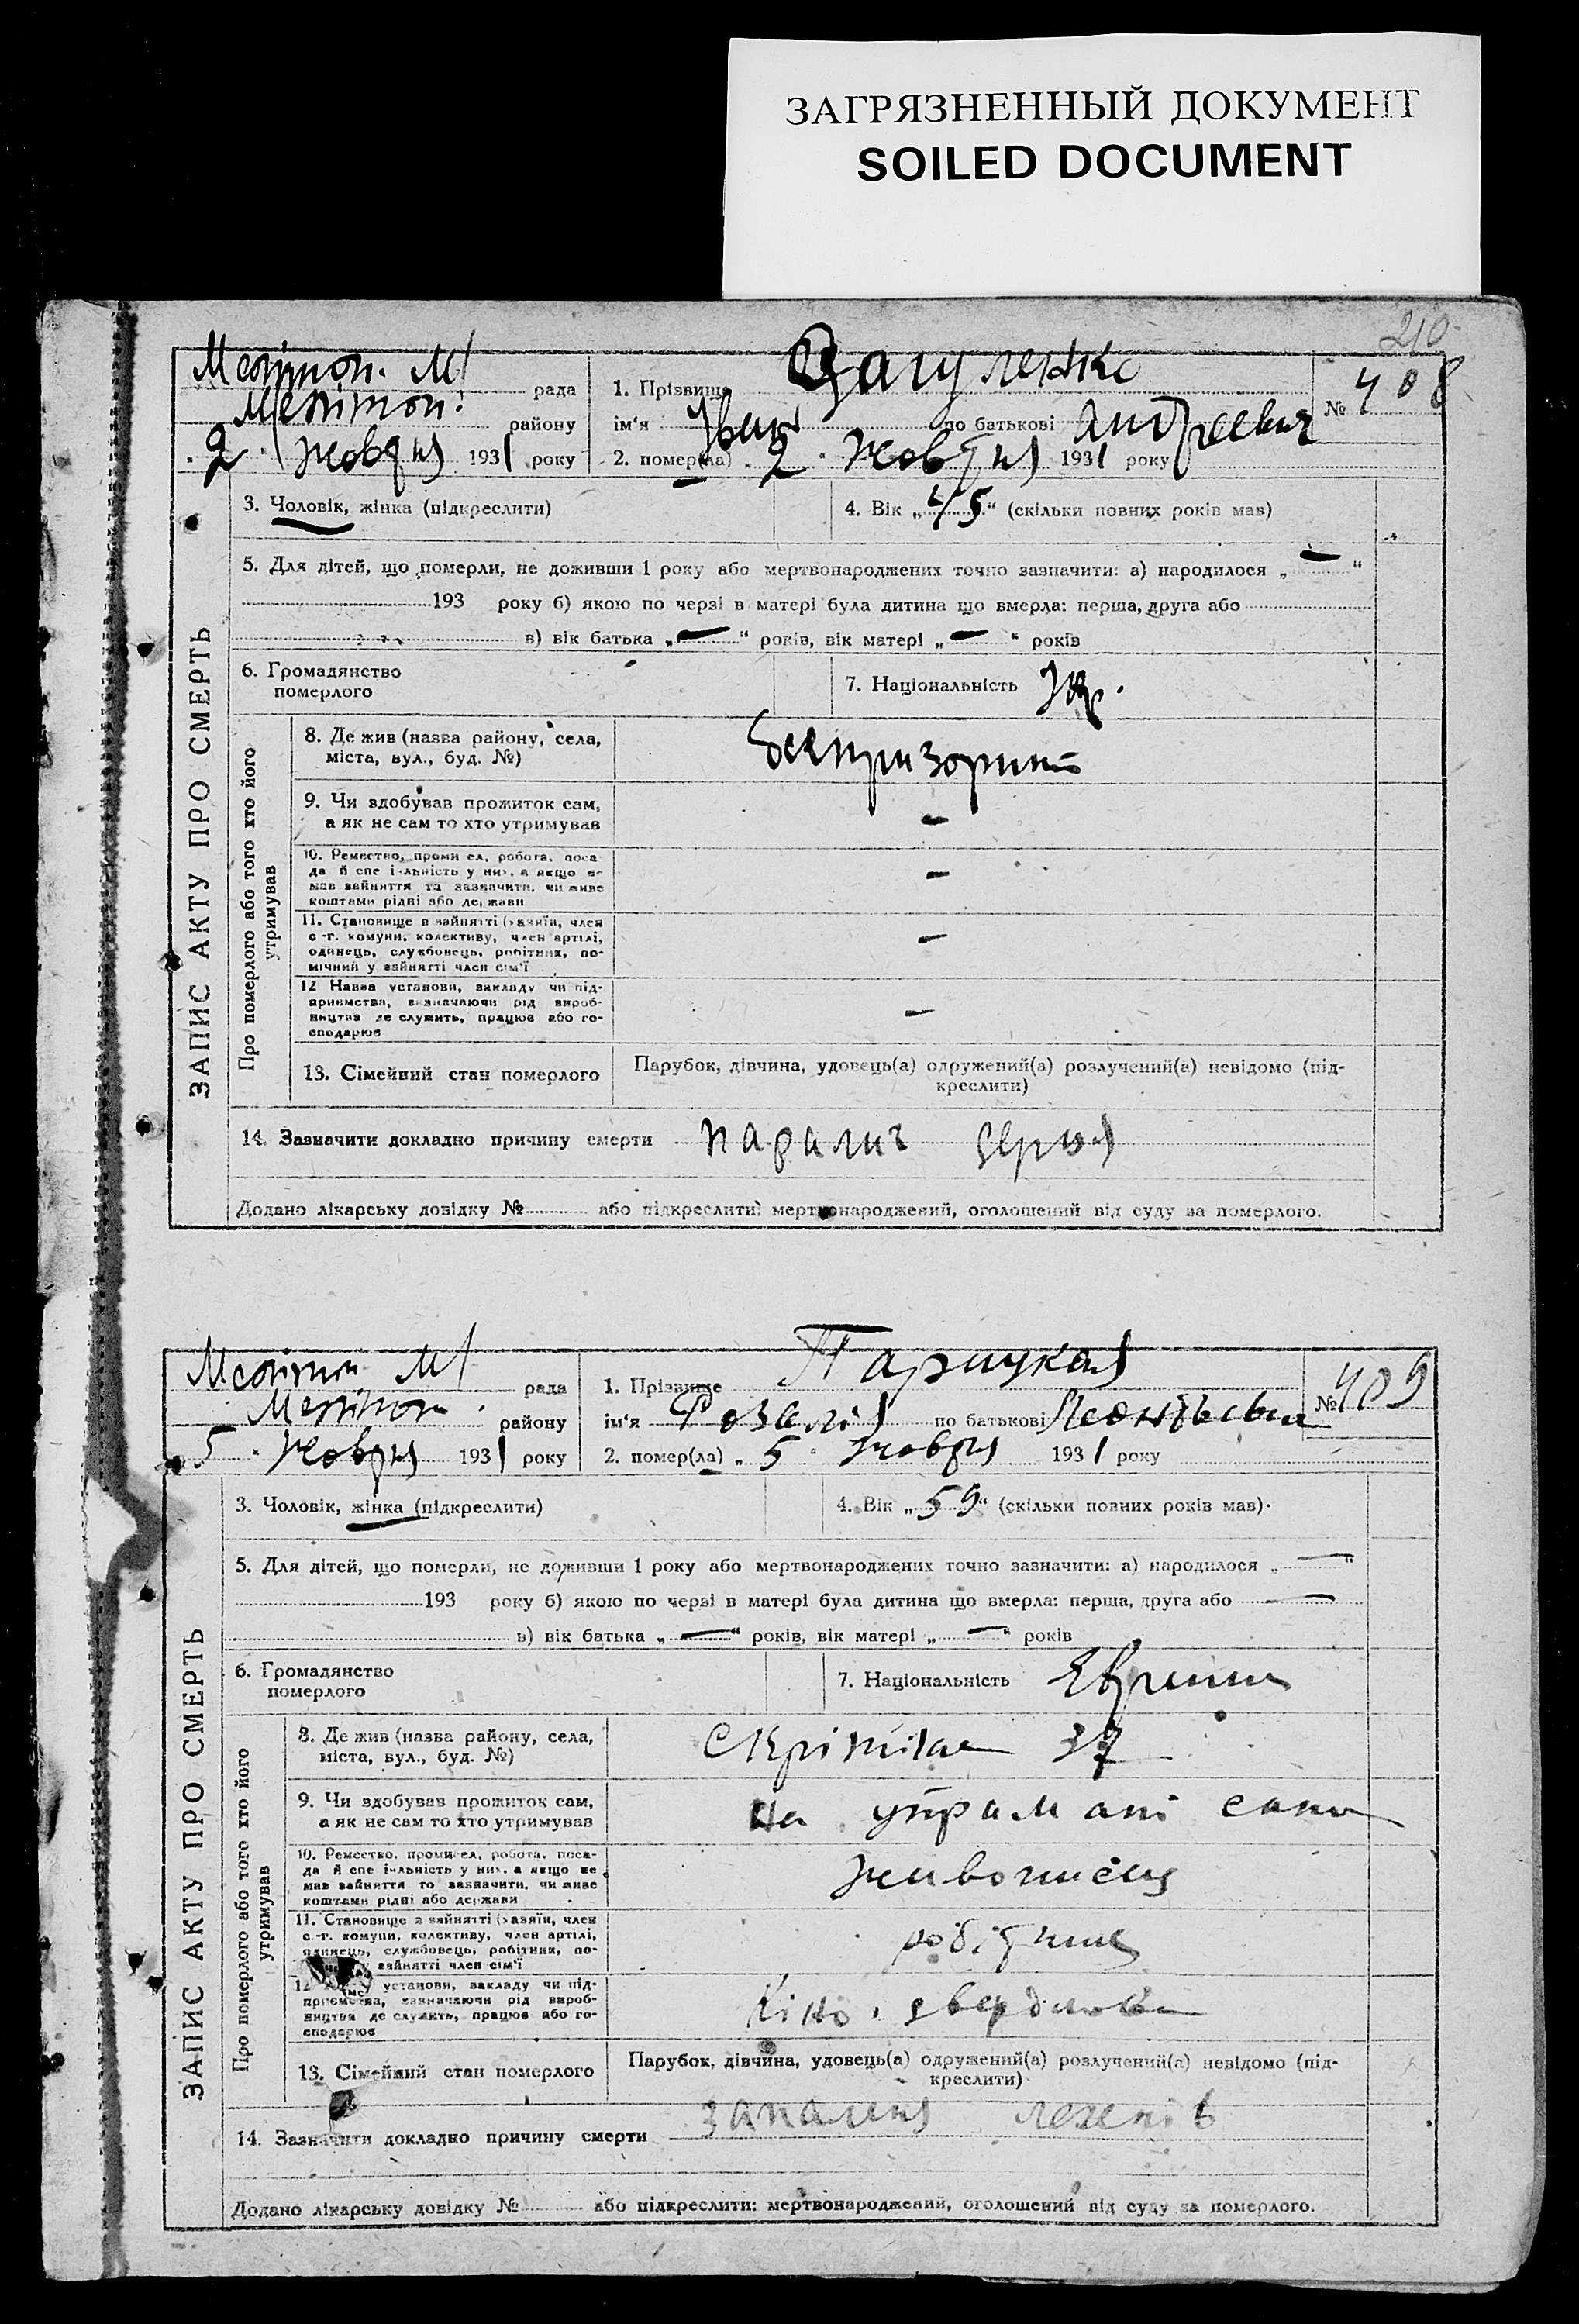 ЗАГРЯЗНЕННЫЙ ДОКУМЕНТ
SOILED DOCUMENT
210
Мелітоп. М/ рада
Мелітоп. району
2 жовтня 1931 року
1. Прізвище Цагуленко
ім‘я Іван по батькові Андреевич
2. помер(ла) „ 2 жовтня 1931 року
№ 408
ЗАПИС АКТУ ПРО СМЕРТЬ
3. Чоловік, жінка (підкреслити)
4. Вік „45“ (скільки повних років мав)
5. Для дітей, що померли, не доживши 1 року або мертвонароджених точно зазначити: а) народилося „—“
193 року б) якою по черзі в матері була дитина що вмерла: перша, друга або
в) вік батька „—“ років, вік матері „—“ років
6. Громадянство
померлого
7. Національність Укр.
Про померлого або того хто його
утримував
8. Де жив (назва району, села,
міста, вул., буд. №)
Безпризорний
9. Чи здобував прожиток сам,
а як не сам то хто утримував
—
10. Ремество, промисел, робота, поса-
да й спеціяльність у них, а якщо не
мав зайняття то зазначити, чи живе
коштами рідні або держави
—
11. Становище в зайнятті (хазяїн, член
с.-г. комуни, колективу, член артілі,
одинець, службовець, робітник, по-
мічний у зайнятті член сім‘ї
—
12 Назва установи, закладу чи під-
приємства, зазначаючи рід вироб-
ництва де служить, працює або го-
сподарює
—
13. Сімейний стан померлого
Парубок, дівчина, удовець(а) одружений(а) розлучений(а) невідомо (під-
креслити)
14. Зазначити докладно причину смерти параліч серця
Додано лікарську довідку № або підкреслити: мертвонароджений, оголошений від суду за померлого.
Мелітоп М/ рада
Мелітоп. району
5 жовтня 1931 року
1. Прізвище Тарицкая
ім‘я Розалія по батькові Леонтьевна
2. помер(ла) „ 5 жовтня 1931 року
№ 409
ЗАПИС АКТУ ПРО СМЕРТЬ
3. Чоловік, жінка (підкреслити)
4. Вік „59“ (скільки повних років мав)
5. Для дітей, що померли, не доживши 1 року або мертвонароджених точно зазначити: а) народилося „—“
193 року б) якою по черзі в матері була дитина що вмерла: перша, друга або —
в) вік батька „—“ років, вік матері „—“ років
6. Громадянство
померлого
7. Національність
Про померлого або того хто його
утримував
8. Де жив (назва району, села,
міста, вул., буд. №)
37
9. Чи здобував прожиток сам,
а як не сам то хто утримував
на утримані сина
10. Ремество, промисел, робота, поса-
да й спеціяльність у них, а якщо не
мав зайняття то зазначити, чи живе
коштами рідні або держави
живописец
11. Становище в зайнятті (хазяїн, член
с.-г. комуни, колективу, член артілі,
одинець, службовець, робітник, по-
зайнятті член сім‘ї
робітник
12 установи, закладу чи під-
приємства, зазначаючи рід вироб-
ництва де служить, працює або го-
сподарює
Кіно. свердлова
13. Сімейний стан померлого
Парубок, дівчина, удовець(а) одружений(а) розлучений(а) невідомо (під-
креслити)
14. Зазначити докладно причину смерти запаленя легенів
Додано лікарську довідку № або підкреслити: мертвонароджений, оголошений від суду за померлого.